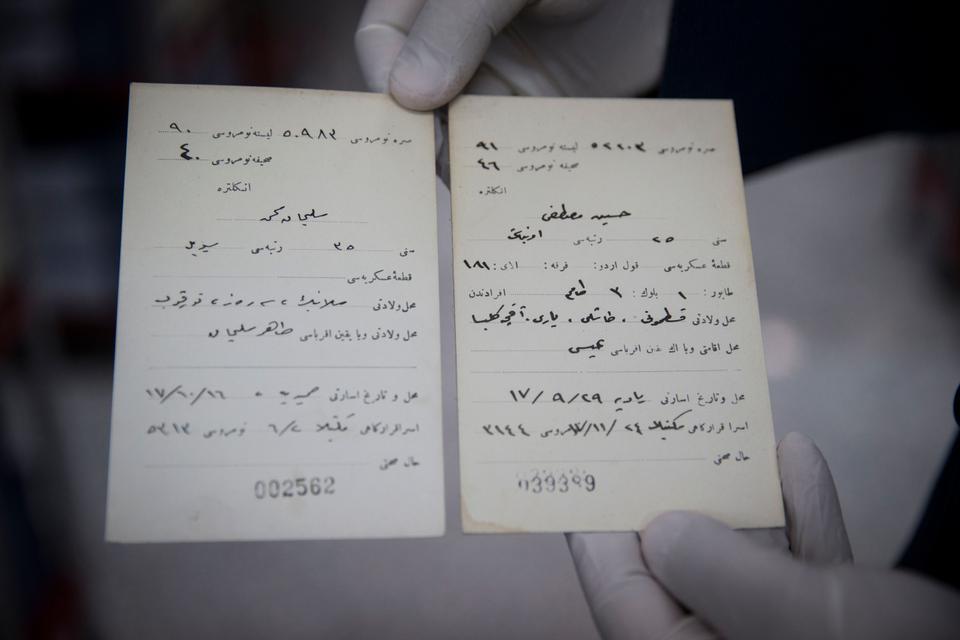 صره نومروسی ٥٠٩٨٣ لیسته نومروسی ٩٠
صحیفه نومروسی ٤٠
انكلتره
سلیمان
سنی ٣٥ رتبه‌سی سویل
قطعهٔ عسكریه‌سی
محل ولادتی سلانیك
محل ولادتی ویا یقین اقرباسی طاهر سلیمان
محل و تاریخ اسارتی ١٧/١٠/١٦
اسرا قرارگاهی ٦/٢ نومروسی ٥٣١٣
حال صحتی
002562
صره نومروسی ٥٢٢٠٣ لیسته نومروسی ٩١
صحیفه نومروسی ٤٦
انكلتره
حسین مصطفی
سنی ٢٥ رتبه‌سی اونباشی
قطعهٔ عسكریه‌سی قول اردو : فرقه : الای : ١٨١
طابور : ١ بلوك : ٣ افرادندن
محل ولادتی قسطمونی . طاشلی .
محل اقامتی ویا اك یقین اقرباسی عیسی
محل و تاریخ اسارتی ١٧/٩/٢٩
اسرا قرارگاهی ٢٤/١١/ ٣١٤٤
حال صحتی
039399